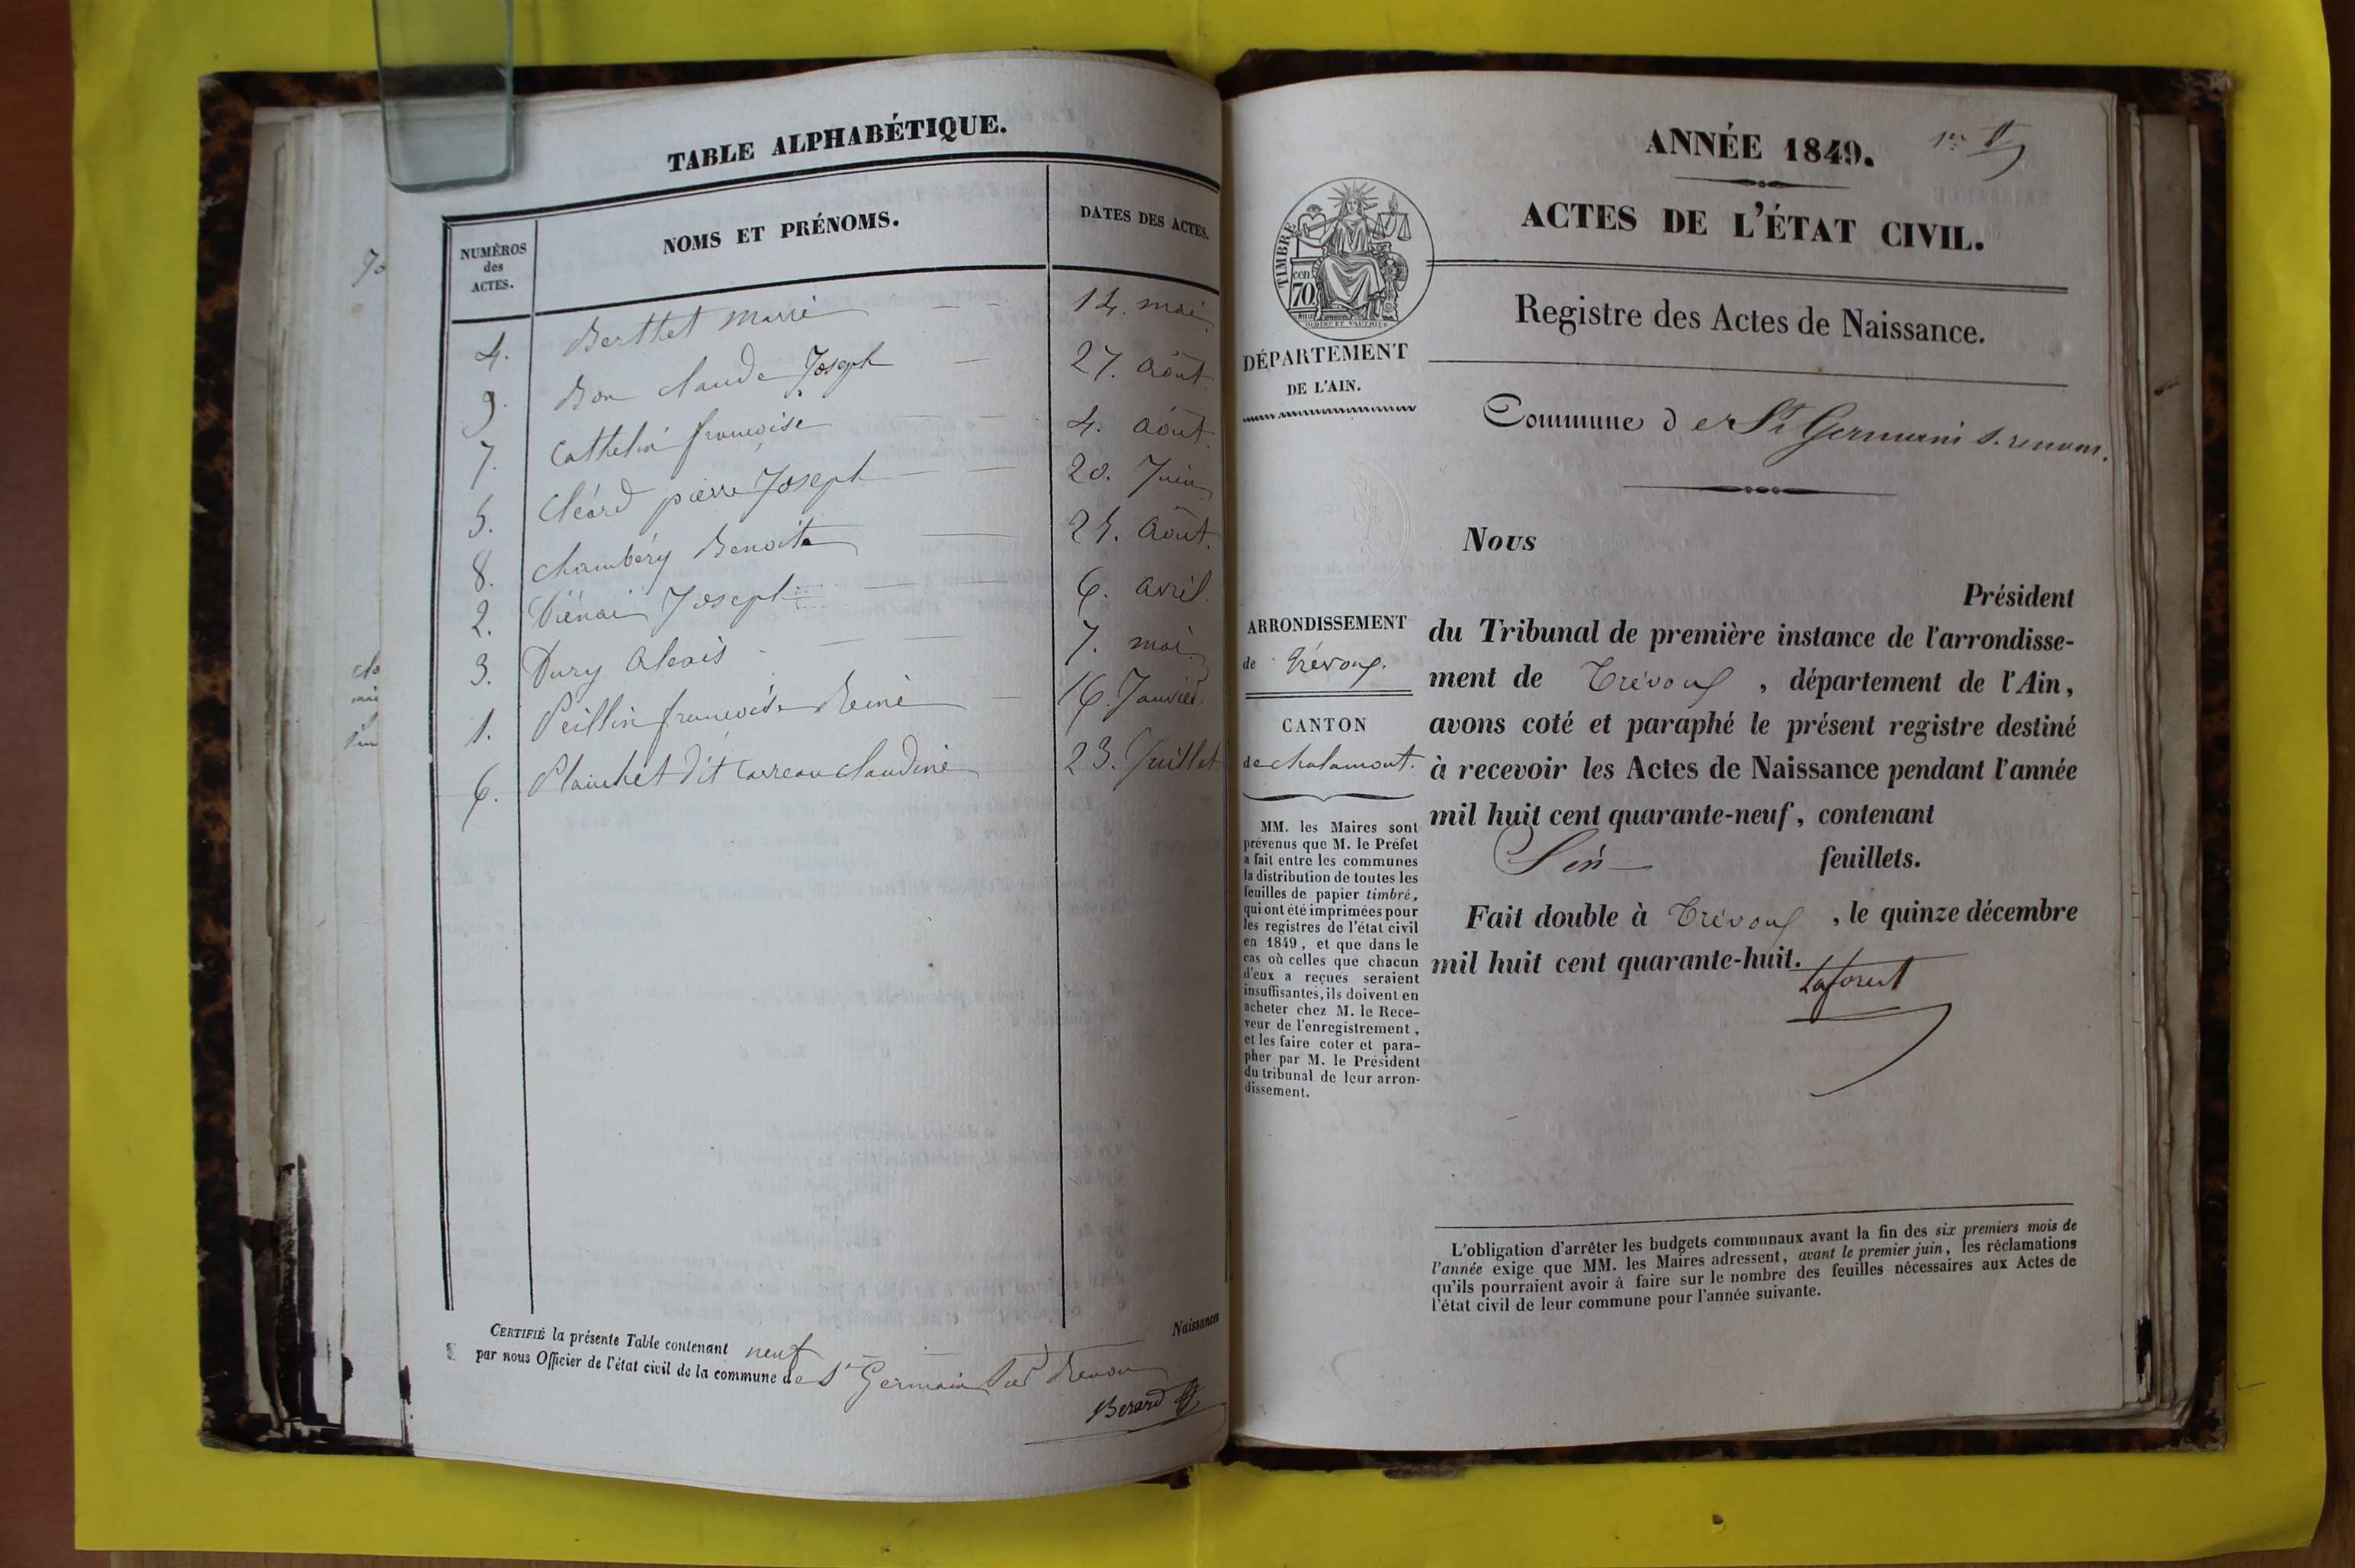 TABLE ALPHABÉTIQUE.
NUMÉROS des ACTES.
NOMS ET PRÉNOMS.
DATES DES ACTES.
4. Berthet Marie 14. mai
9. Bon Claude Joseph 27. août
7. Cathelin françoise 4. août
5. Cléard pierre Joseph 20. Juin
8. Chambéry Benoite 25. août
2. Joseph 6. avril
3. Dury Alexis 7. mai
1. Peillin françoise Reine 16. Janvier
6. Planchet dit Carreau Claudine 23. Juillet
CERTIFIÉ la présente Table contenant neuf Naissances
par nous Officier de l'état civil de la commune de St Germain Sur Renon
Berard
ANNÉE 1849.
1er
ACTES DE L'ÉTAT CIVIL.
TIMBRE
70 cen.
Registre des Actes de Naissance.
DÉPARTEMENT
DE L'AIN.
Commune de St Germain s. renom.
Nous
Président
ARRONDISSEMENT
de Trévoux.
CANTON
de chalamont.
du Tribunal de première instance de l'arrondisse-
ment de Trévoux, département de l'Ain,
avons coté et paraphé le présent registre destiné
à recevoir les Actes de Naissance pendant l'année
mil huit cent quarante-neuf, contenant
feuillets.
Fait double à Trévoux, le quinze décembre
mil huit cent quarante-huit.
Laforest
MM. les Maires sont
prévenus que M. le Préfet
a fait entre les communes
la distribution de toutes les
feuilles de papier timbré,
qui ont été imprimées pour
les registres de l'état civil
en 1849, et que dans le
cas où celles que chacun
d'eux a reçues seraient
insuffisantes, ils doivent en
acheter chez M. le Rece-
veur de l'enregistrement,
et les faire coter et para-
pher par M. le Président
du tribunal de leur arron-
dissement.
L'obligation d'arrêter les budgets communaux avant la fin des six premiers mois de
l'année exige que MM. les Maires adressent, avant le premier juin, les réclamations
qu'ils pourraient avoir à faire sur le nombre des feuilles nécessaires aux Actes de
l'état civil de leur commune pour l'année suivante.